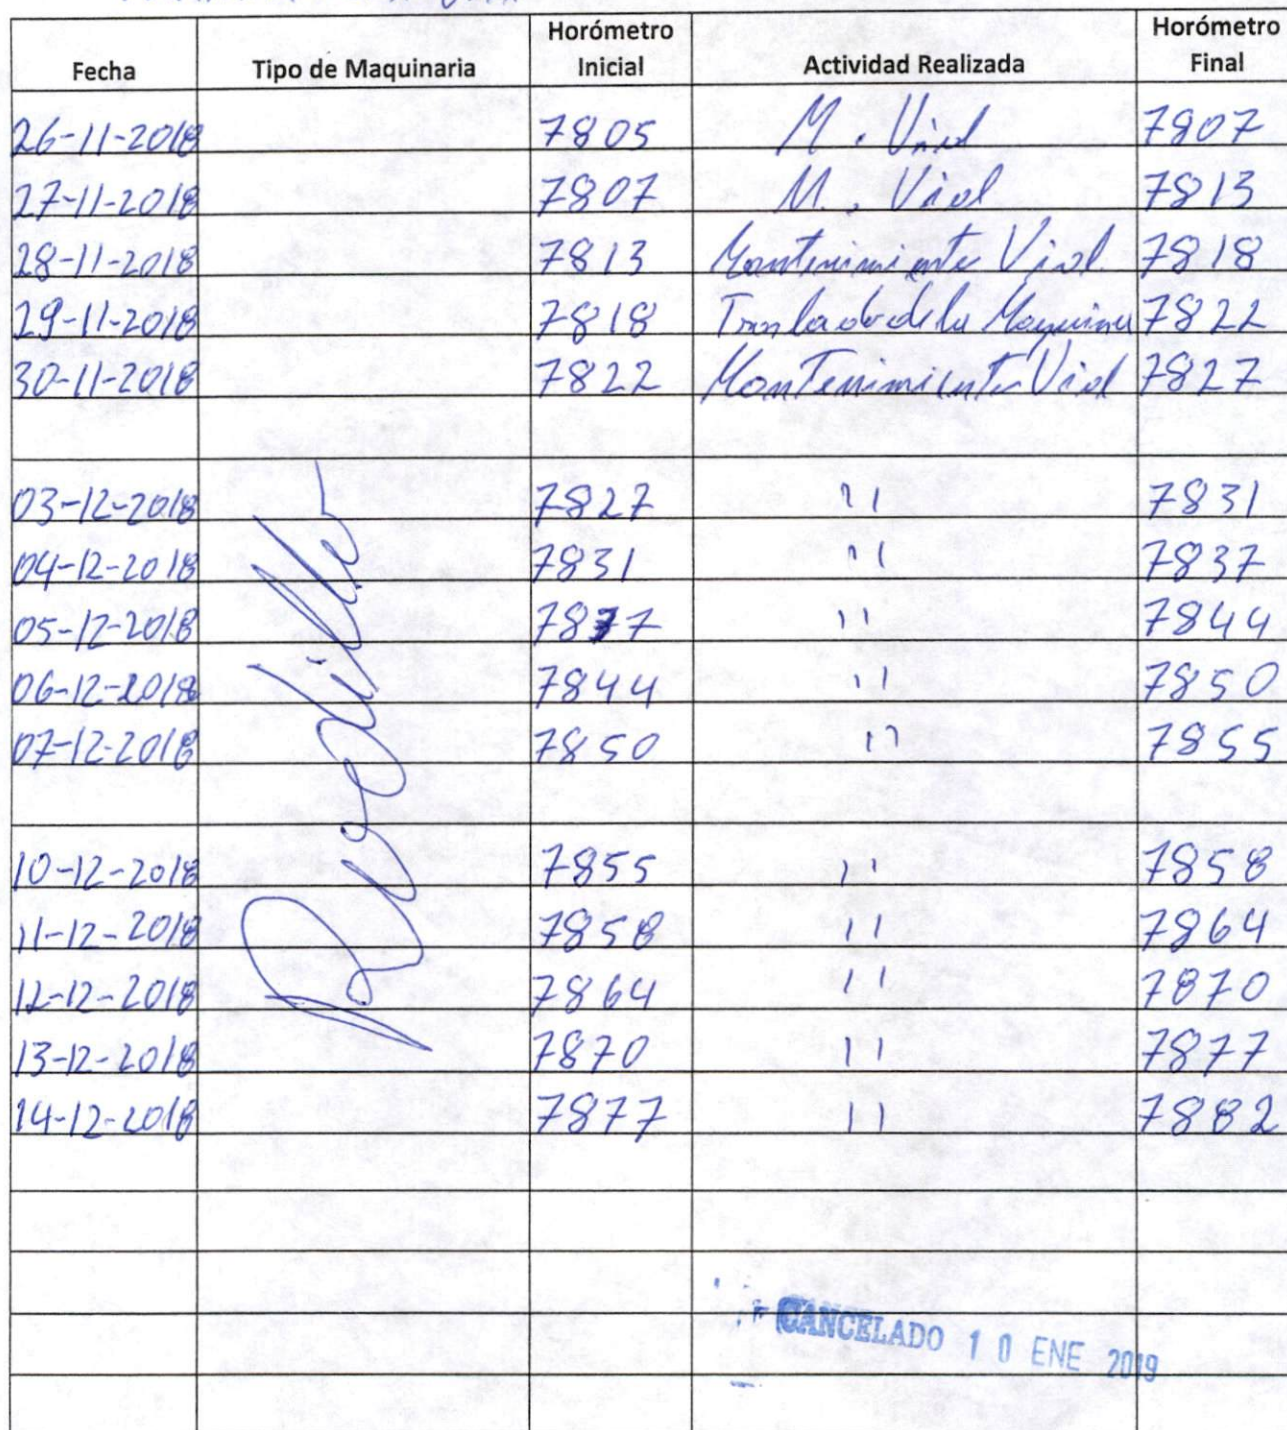 Fecha Tipo de Maquinaria Horómetro Inicial Actividad Realizada Horómetro Final
26-11-2018 7805 M. Vial 7807
27-11-2018 7807 M. Vial 7813
28-11-2018 7813 Mantenimiento Vial. 7818
29-11-2018 7818 Traslado de la Maquina 7822
30-11-2018 7822 Mantenimiento Vial 7827
03-12-2018 7827 '' 7831
04-12-2018 7831 '' 7837
05-12-2018 7837 '' 7844
06-12-2018 7844 '' 7850
07-12-2018 7850 '' 7855
10-12-2018 7855 '' 7858
11-12-2018 7858 '' 7864
12-12-2018 7864 '' 7870
13-12-2018 7870 '' 7877
14-12-2018 7877 '' 7882
CANCELADO 10 ENE 2019